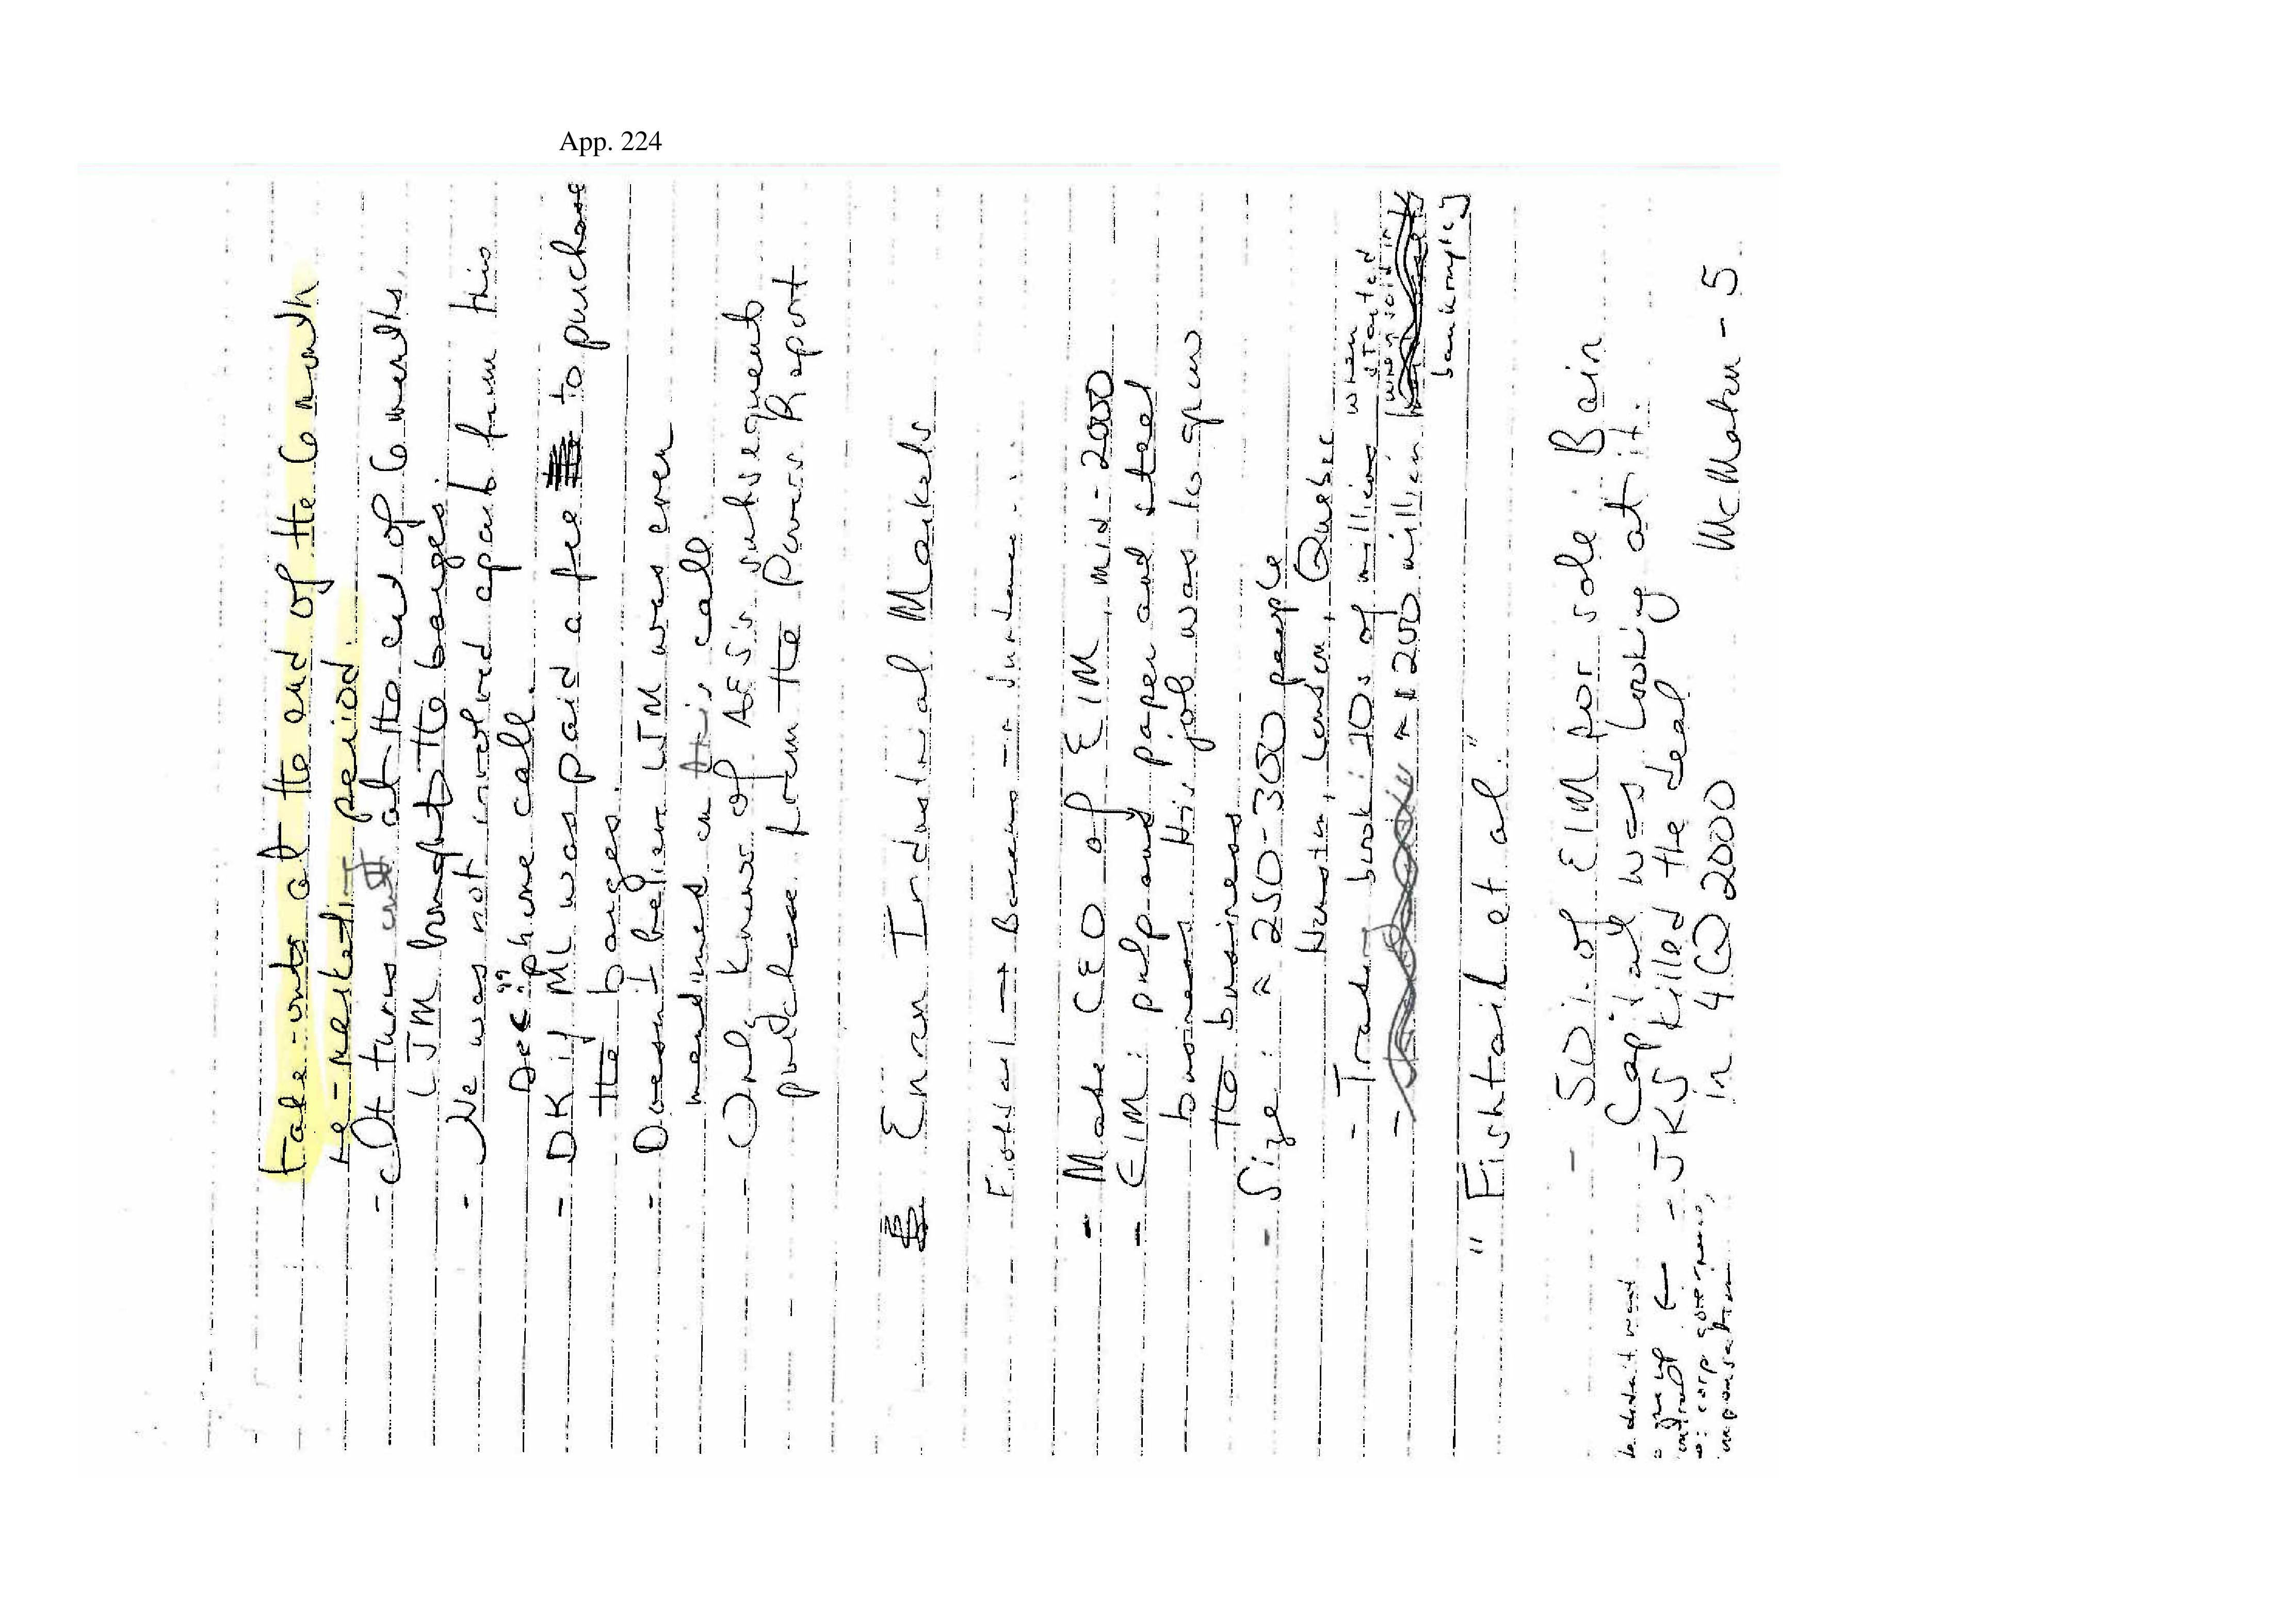 App. 224
take-outs at the end of the 6 month
re-marketing period.
- It turns out at the end of 6 months,
LJM bought the barges.
- He was not involved apart from this
Dec. '99 phone call.
- DK if ML was paid a fee to purchase
the barges.
- Doesn't believe LJM was ever
mentioned on this call.
- Only knows of AES's subsequent
purchase from the Powers Report
Enron Industrial Markets
- Made CEO of EIM, mid-2000
- EIM: pulp and paper and steel
business. His job was to grow
the business
- Size: ≈ 250-300 people
Houston, London, Quebec
- Trading book: 10s of millions when started
- ≈ 200 million when sold in
bankruptcy]
"Fishtail et al."
- 50% of EIM for sale: Bain
Capital was looking at it.
- JKS killed the deal
in 4Q 2000
he didn't want
to give up
control ←
o: corp governance,
compensation
McMahon - 5